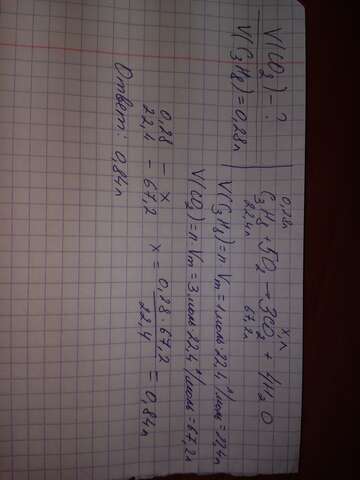 V(CO₂) - ?
V(C₃H₈) = 0,28л
0,28л x л
C₃H₈ + 5O₂ → 3CO₂ + 4H₂O
22,4л 67,2л
V(C₃H₈) = n · Vm = 1 моль · 22,4 л/моль = 22,4л
V(CO₂) = n · Vm = 3 моль · 22,4 л/моль = 67,2л
0,28 — x
22,4 — 67,2 x = 0,28 · 67,2 / 22,4 = 0,84л
Ответ: 0,84л